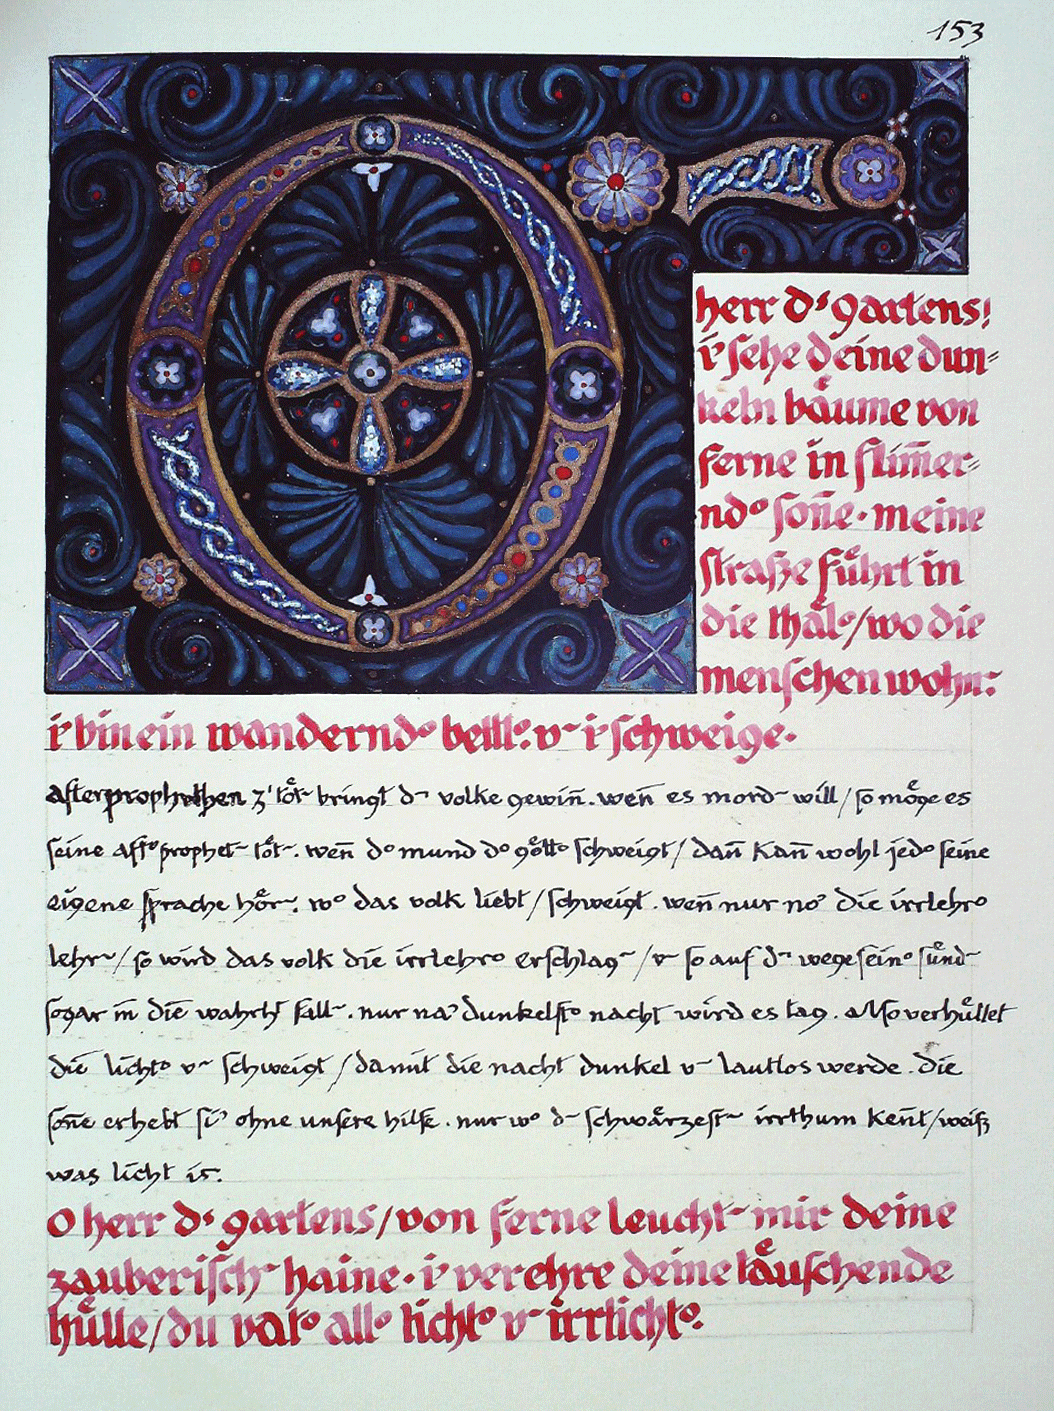 153
O
herr d' gartens!
i' sehe deine dun=
keln bäume von
ferne in flim̄er=
nd' son̄e. meine
straße führt in
die thäl', wo die
menschen wohn'.
i' bin ein wandernd' bettl'. u' i' schweige.
afterprophethen z' töt' bringt d' volke gewin̄. wen̄ es mord' will / so möge es
seine aft' prophet' töt'. wen̄ d' mund d' gött' schweigt / dan̄ kan̄ wohl jed' seine
eigene sprache hör'. w' das volk liebt / schweigt. wen̄ nur no' die irrlehr'
lehr' / so wird das volk die irrlehr' erschlag' / u' so auf d' wege sein' sünd'
sogar in die wahrht fall'. nur na' dunkelst' nacht wird es tag. also verhüllet
die licht' u' schweigt / damit die nacht dunkel u' lautlos werde. die
son̄e erhebt si' ohne unsere hilfe. nur w' d' schwärzest' irrthum ken̄t / weiß
was licht is'.
O herr d' gartens / von ferne leucht' mir deine
zauberisch' haine. i' verehre deine täuschende
hülle / du vat' all' licht' u' irrlicht'.